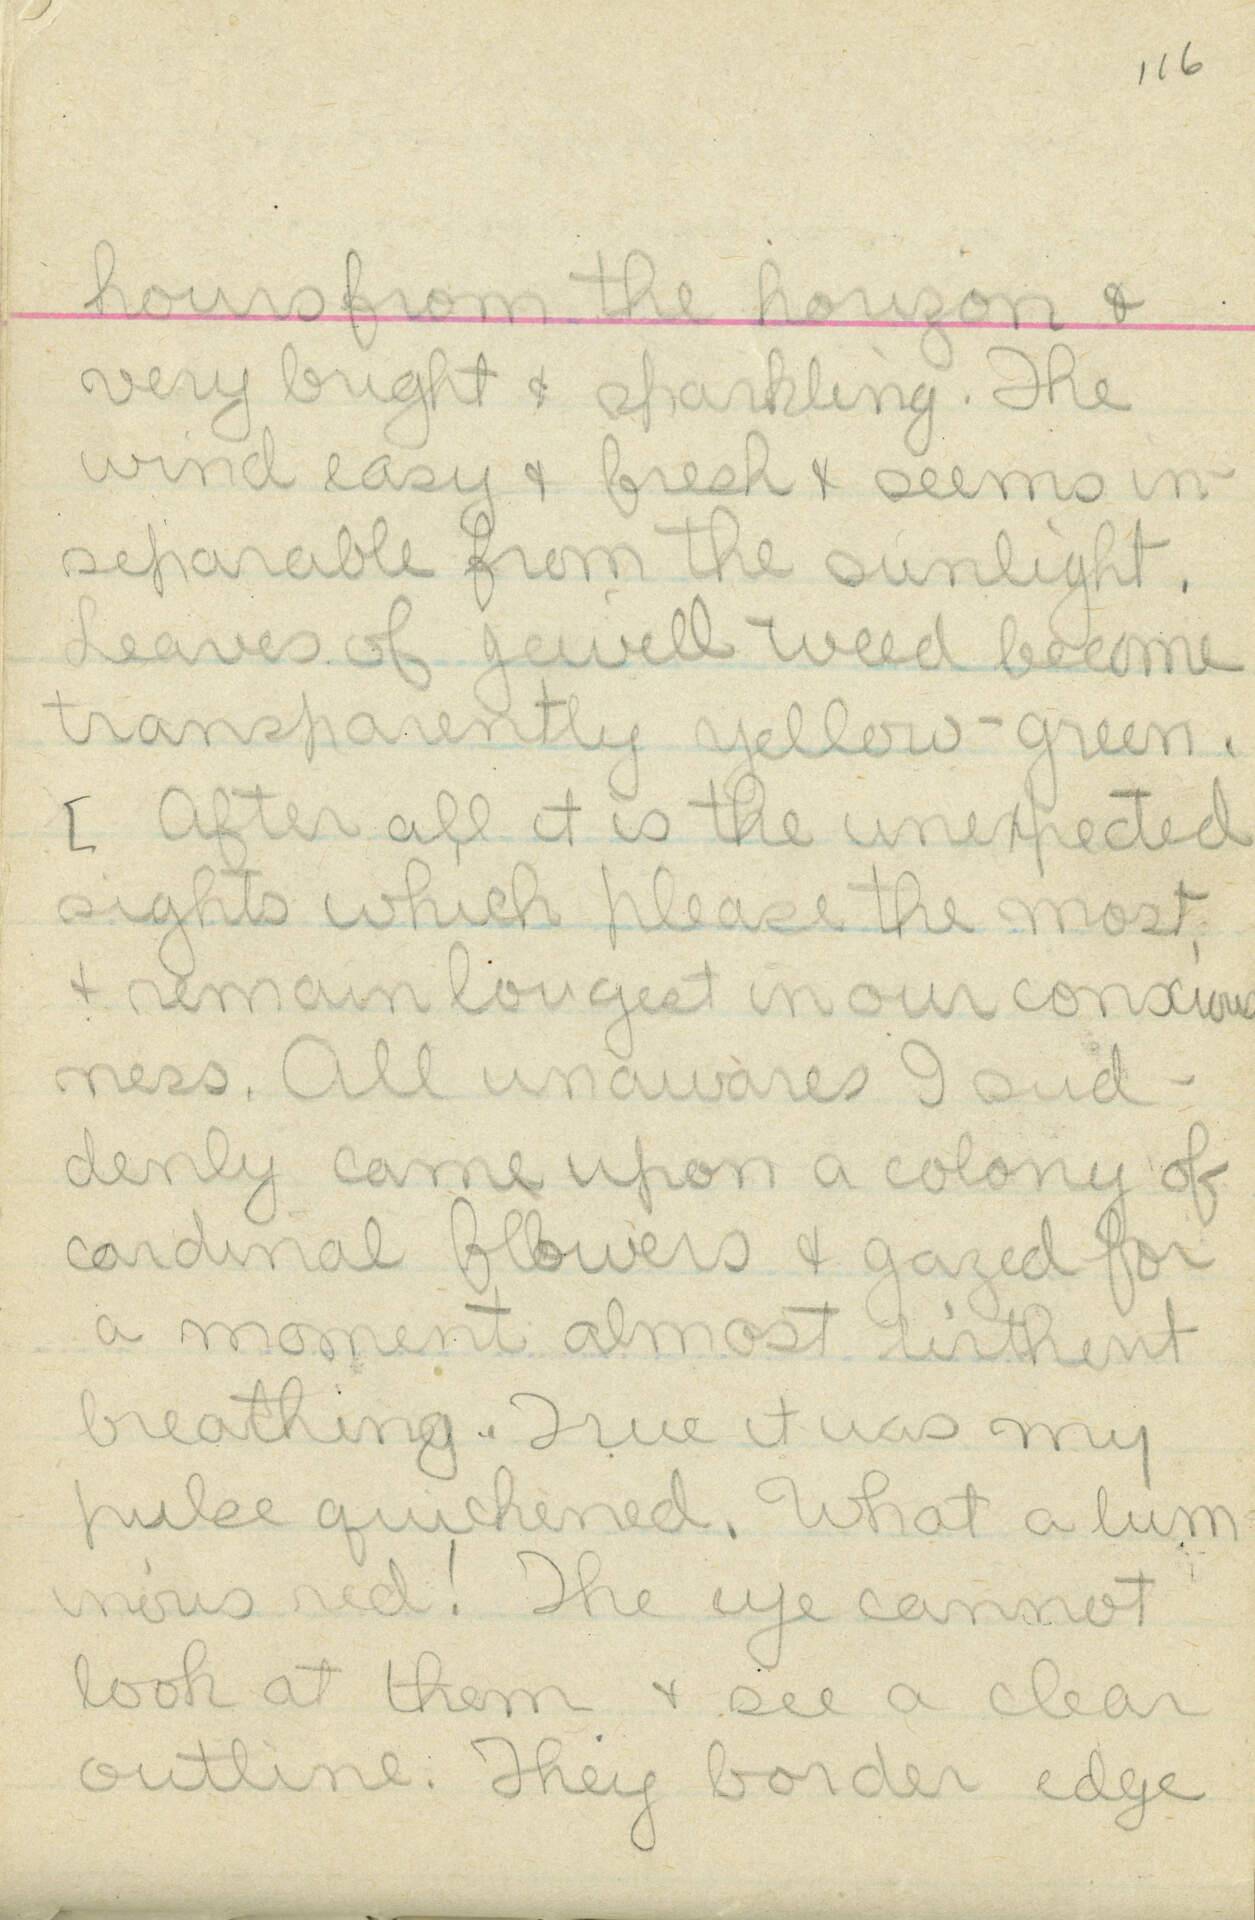 116
hours from the horizon &
very bright & sparkling. The
wind easy & fresh & seems in-
separable from the sunlight.
Leaves of jewell-weed become
transparently yellow-green.
[ After all it is the unexpected
sights which please the most,
& remain longest in our conscious
ness. All unawares I sud-
denly came upon a colony of
cardinal flowers & gazed for
a moment almost without
breathing. True it was my
pulse quickened. What a lum-
inous red! The eye cannot
look at them & see a clear
outline. They border edge